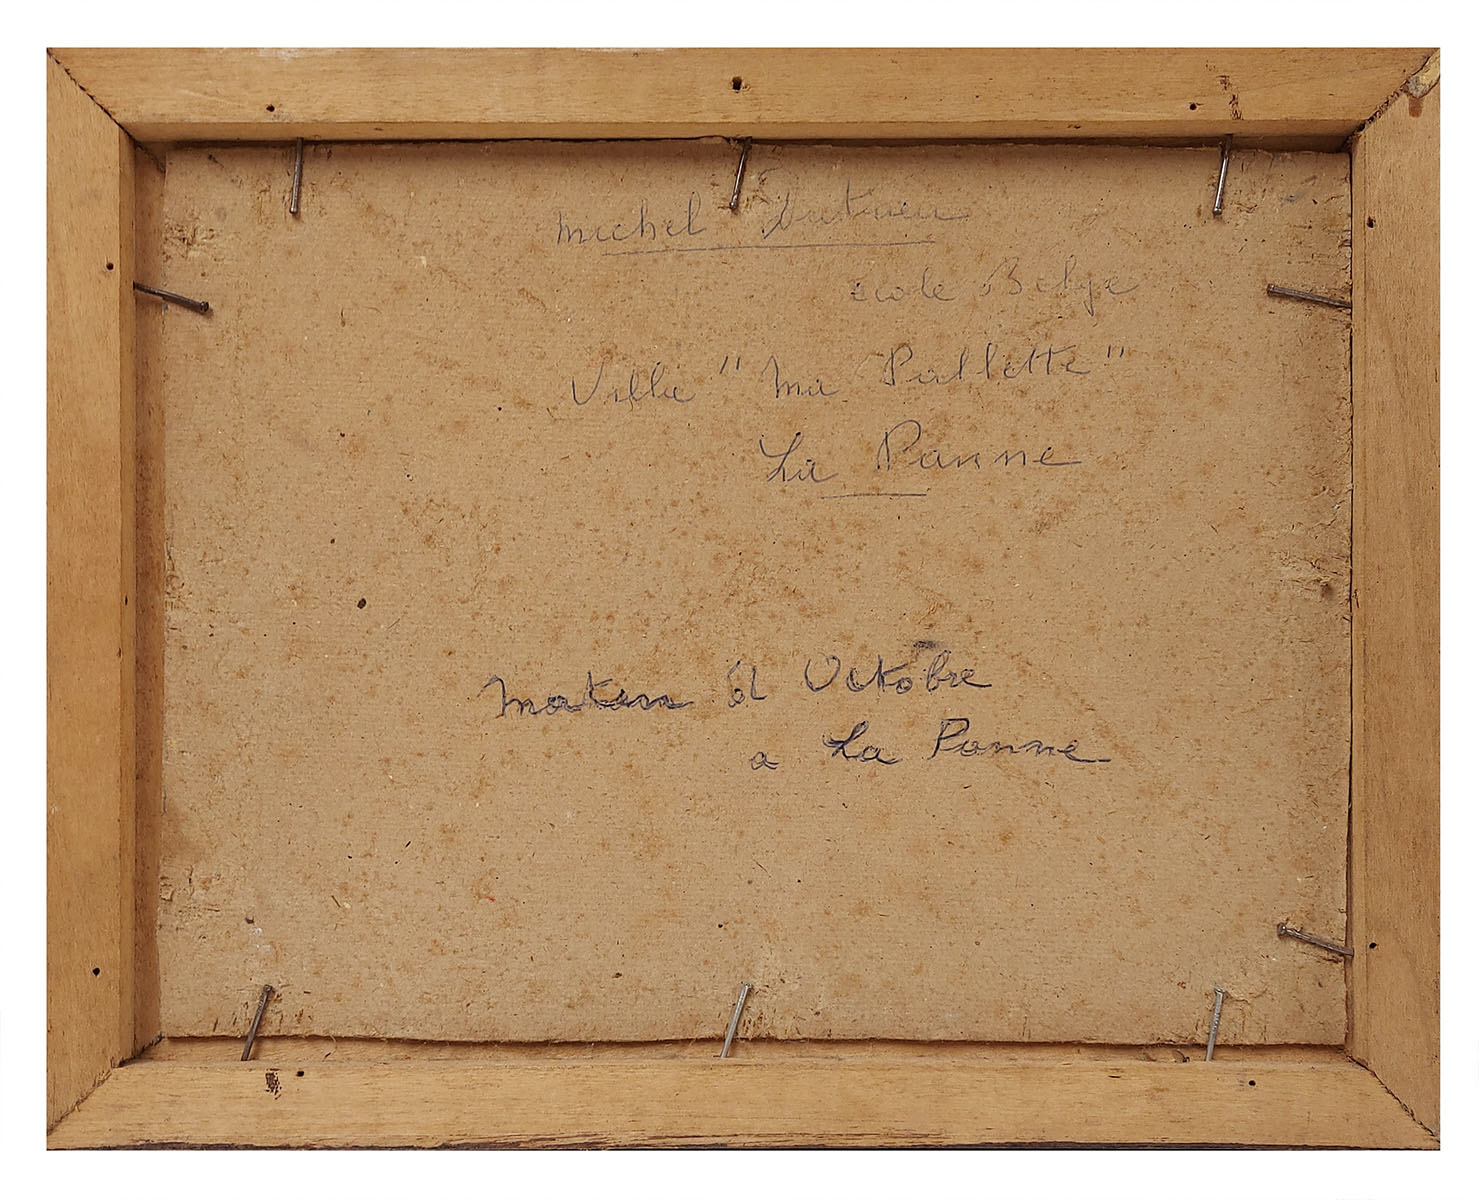 Michel Dutrieu
école Belge
Villa "Ma Pallette"
La Panne
Maten d'Octobre
a La Panne